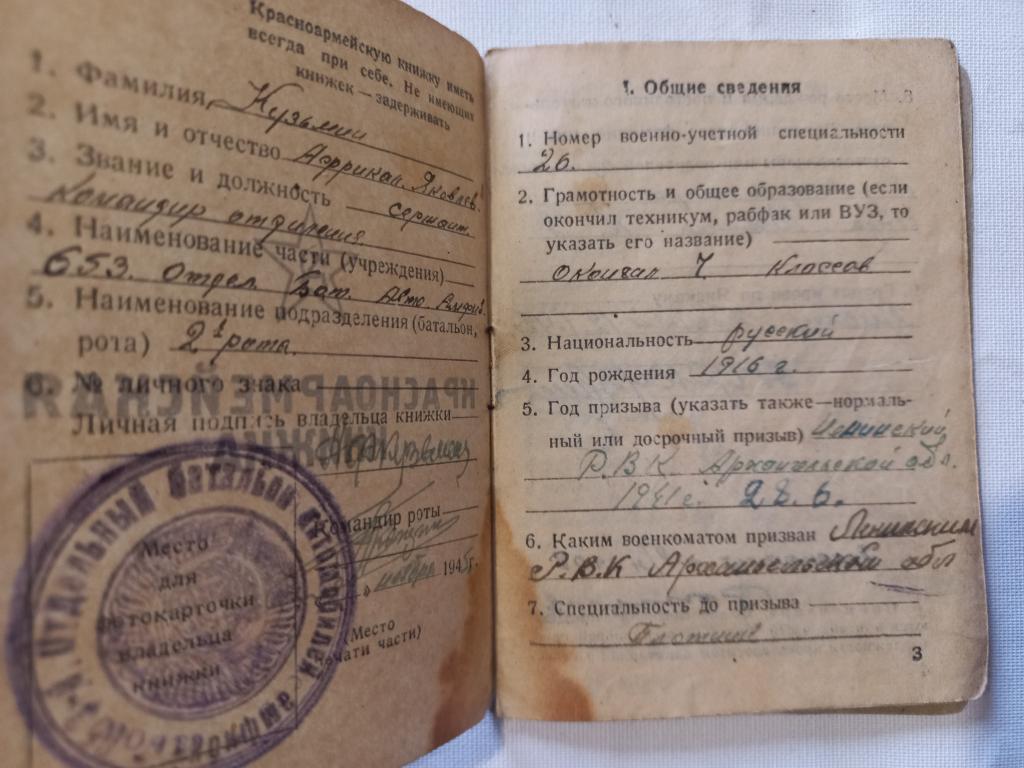 Красноармейскую книжку иметь
всегда при себе. Не имеющих
книжек — задерживать
1. Фамилия Кузьмин
2. Имя и отчество Африкан. Яковлев.
3. Звание и должность сержант.
Командир отделения
4. Наименование части (учреждения)
653. Отдел. Бат. Авто
5. Наименование подразделения (батальон,
рота) 2я рота.
6. № личного знака
Личная подпись владельца книжки
КРАСНОАРМЕЙСКАЯ
КНИЖКА
Командир роты
ноября 1945г.
Место
для
фотокарточки
владельца
книжки
(Место
печати части)
ОТДЕЛЬНЫЙ БАТАЛЬОН
I. Общие сведения
1. Номер военно-учетной специальности
26.
2. Грамотность и общее образование (если
окончил техникум, рабфак или ВУЗ, то
указать его название)
Окончал 7 Классов
3. Национальность русский
4. Год рождения 1916 г.
5. Год призыва (указать также—нормаль-
ный или досрочный призыв)
Р.В.К Архангельской обл.
1941 г. 28.6.
6. Каким военкоматом призван
Р.В.К Архангельской обл
7. Специальность до призыва
Плотник
3